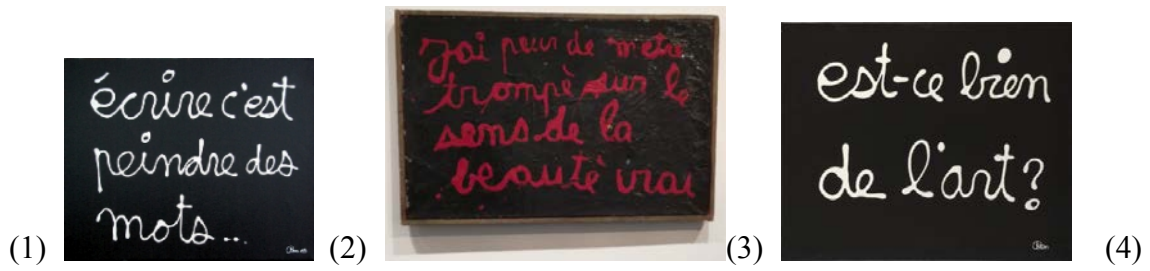 écrire c'est
peindre des
mots...
(1)
j'ai peur de m'etre
trompé sur le
sens de la
beauté vrai
(2)
est-ce bien
de l'art?
Ben
(3)
(4)